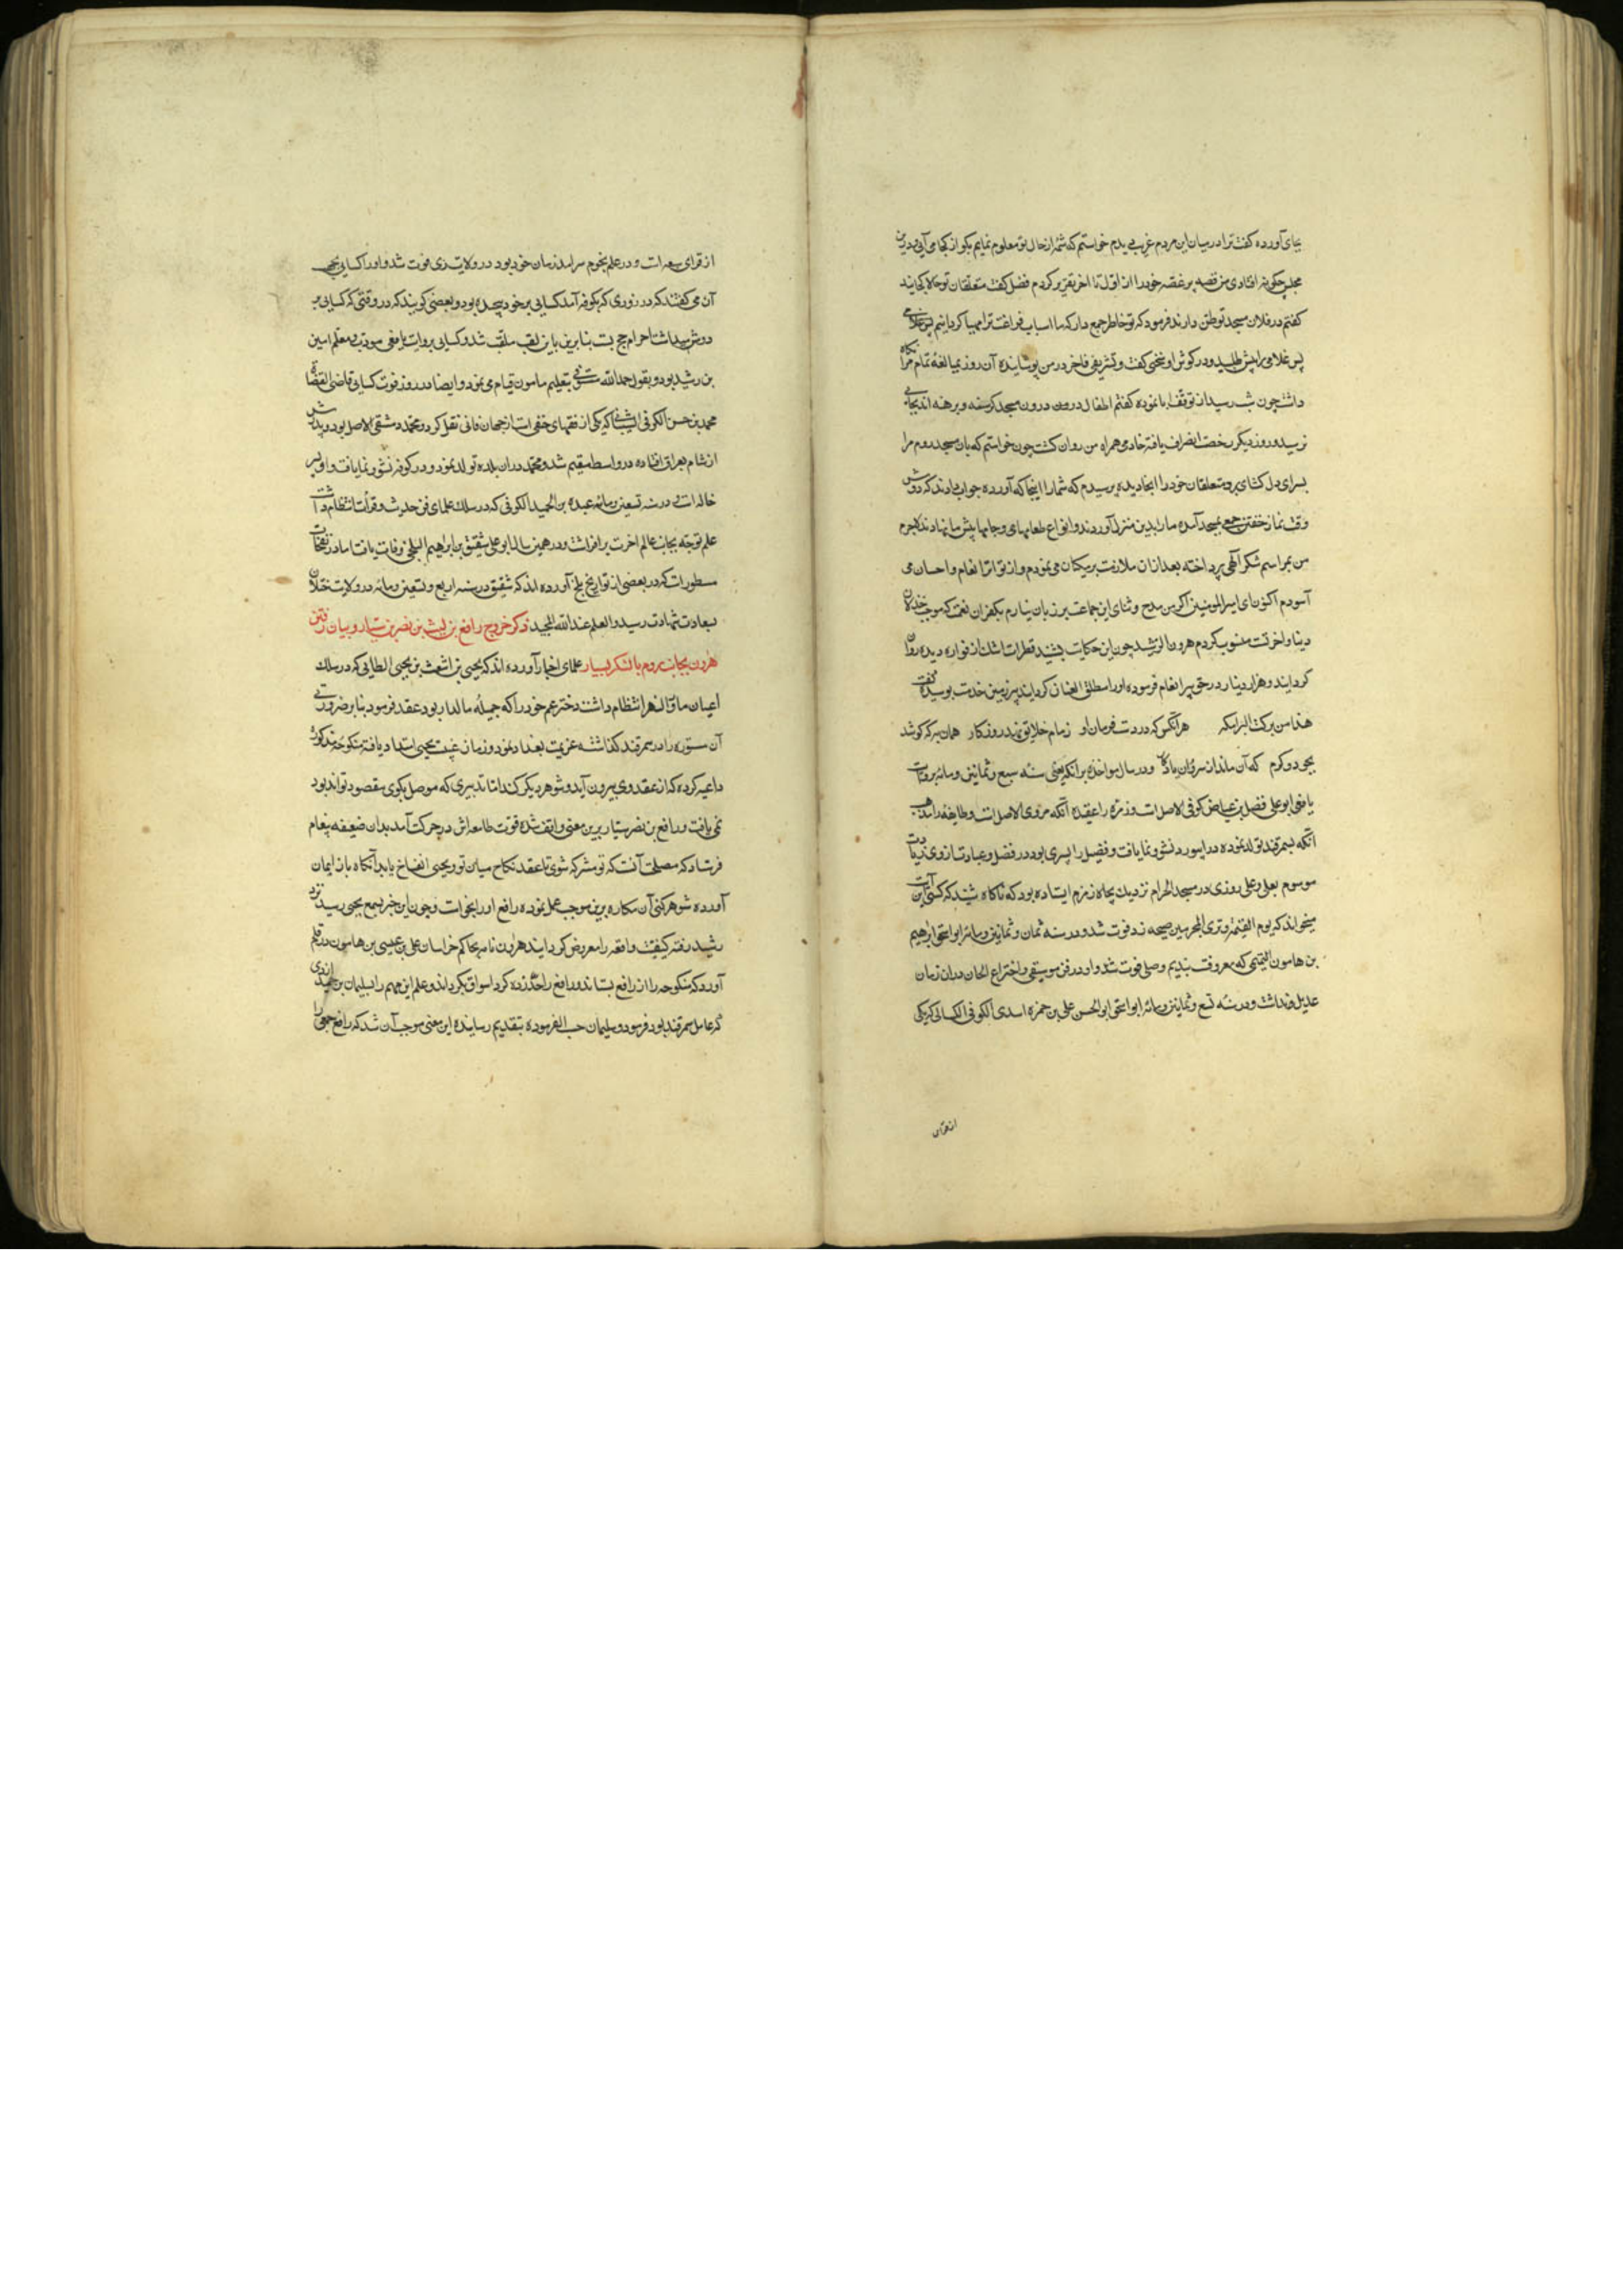 بجای آورده گفت ترا درمیان این مردم غریب دیدم خواستم که شمهٔ از حال تو معلوم نمایم بگو از کجا می آیی و درین
مجلس چگونه افتادی من قصه پر غصه خود را از اول تا آخر تقریر کردم فضل گفت متعلقان تو حالا کجایند
گفتم در فلان مسجد توطن دارند فرمود که تو خاطر جمع دار که ما اسباب فراغت ترا مهیا گردانیم پس غلامی
پس غلامی را پیش طلبید و در گوش او سخنی گفت و تشریفی فاخر در من پوشانیده آن روز بمبالغهٔ تمام مرا نگاه
داشت چون شب رسید از توقف ابا نموده گفتم اطفال درون مسجد گرسنه و برهنه اند بجایی
نرسید و روز دیگر رخصت انصراف یافته خادمی همراه من روان گشت چون خواستم که بان مسجد روم مرا
بسرای دل گشای برد و متعلقان خود را آنجا دیده پرسیدم که شما را اینجا که آورده جواب دادند که دوش
وقت نماز خفتن جمعی بمسجد آمده ما را بدین منزل آوردند و انواع طعامهای و جامها پیش ما نهادند لاجرم
من بمراسم شکر الهی پرداخته بعد از ان ملازمت برمکیان می نمودم و از تواتر انعام و احسان می
آسودم اکنون ای امیر المومنین اگر من مدح و ثنای این جماعت بر زبان نیارم بکفران نعمت که موجب خذلان
دنیا و اخرتست منسوب گردم هرون الرشید چون این حکایت بشنید قطرات اشک از فواره دیده روان
گردانید و هزار دینار در حق پیر انعام فرموده او را مطلق العنان گردانید پیر زمین خدمت بوسیده گفت
هذا من برکت البرامکه هر آنکس که در دست فرمان او زمام خلایق نهد روزگار همان به که کوشد
بجود و کرم که آن ماند از سروران یادگار و در سال مواخذه برامکه یعنی سنه سبع و ثمانین و مائه بروایت
یافعی ابو علی فضیل بن عیاض کوفی الاصلست و زمره را عقیده آنکه مروی الاصلست و طایفه را مذهب
آنکه بسمرقند تولد نموده در ابیورد نشو و نما یافت و فضیل را پسری بود در فضل و عبادت از وی زیادت
موسوم بعلی و علی روزی در مسجد الحرام نزدیک بچاه زمزم ایستاده بود که ناگاه شنید که کسی این آیت
میخواند که یوم القیمة و تری المجرمین صیحه زد فوت شد و در سنه ثمان و ثمانین و مائه ابو اسحق ابرهیم
بن هامون التیمی که معروفست بندیم وصلی فوت شد و او در فن موسیقی و اختراع الحان در ان زمان
عدیل نداشت و در سنه تسع و ثمانین و مائه ابو اسحق ابو الحسن علی بن حمزه اسدی الکوفی الکسائی که یکی
از قرای
از قرای سبعه است و در علم نجوم سرامد زمان خود بود در ولایت ری فوت شد و او را کسایی بجهت
آن می گفتند که در روزی که بکوفه آمد کسایی بر خود پیچیده بود و بعضی گویند که در وقتی که کسایی بر
دوش میداشت احرام حج بست بنابرین باین لقب ملقب شد و کسایی بروایت یافعی مودب و معلم امین
بن رشید بود و بقول حمد الله مستوفی بتعلیم مامون قیام می نمود و ایضا در روز فوت کسایی قاضی القضاة
محمد بن حسن الکوفی الشیبانی که یکی از فقهای حنفی است از جهان فانی نقل کرد و محمد دمشقی الاصل بود و پدرش
از شام بعراق افتاده در واسط مقیم شد و محمد در ان بلده تولد نمود و در کوفه نشو و نما یافت و او پسر
خاله است در سنه تسعین و مائه عبده بن الحمید الکوفی که در سلک علمای فن حدیث و قرأت انتظام داشت
علم توجه بجانب عالم اخرت برافراشت و در همین سال ابو علی شقیق بن ابراهیم البلخی وفات یافت اما در نفحات
مسطورست که در بعضی از تواریخ بلخ آورده اند که شقیق در سنه اربع و تسعین و مائه در ولایت ختلان
بسعادت شهادت رسید و العلم عند الله المجید ذکر خروج رافع بن لیث بن نصر بن سیار و بیان رفتن
هرون بجانب روم با لشکر بسیار علمای اخبار آورده اند که یحیی بن اشعث بن یحیی الطایی که در سلک
اعیان ماوراالنهر انتظام داشت دختر عم خود را که جمیلهٔ مالدار بود عقد فرمود بنابر ضرورتی
آن مستوره را در سمرقند گذاشته عزیمت بغداد نمود و زمان غیبت یحیی امتداد یافته منکوحهٔ مذکوره
داعیه کرده که از عقد وی بیرون آید و شوهر دیگر کند اما تدبیری که موصل بکوی مقصود تواند بود
نمی یافت و رافع بن نصر سیار برین معنی واقف شده قوت طامعه اش در حرکت آمد بدان ضعیفه پیغام
فرستاد که مصلحت آنست که تو مشرکه شوی تا عقد نکاح میان تو و یحیی انفساخ یابد آنگاه باز ایمان
آورده شوهر کنی آن مکاره برین موجب عمل نموده رافع او را بخواست و چون این خبر بسمع یحیی رسید نزد
رشید رفته کیفیت واقعه را معروض گردانید هرون نامه بحاکم خراسان علی بن عیسی بن هامون در قلم
آورد که منکوحه را از رافع بستاند و رافع را حد زده گرد اسواق بگرداند و علم این مهم را بسلیمان بن حمید ازدی
که عامل سمرقند بود فرمود و سلیمان حسب الفرموده بتقدیم رسانیده این معنی موجب آن شد که رافع جمعی را